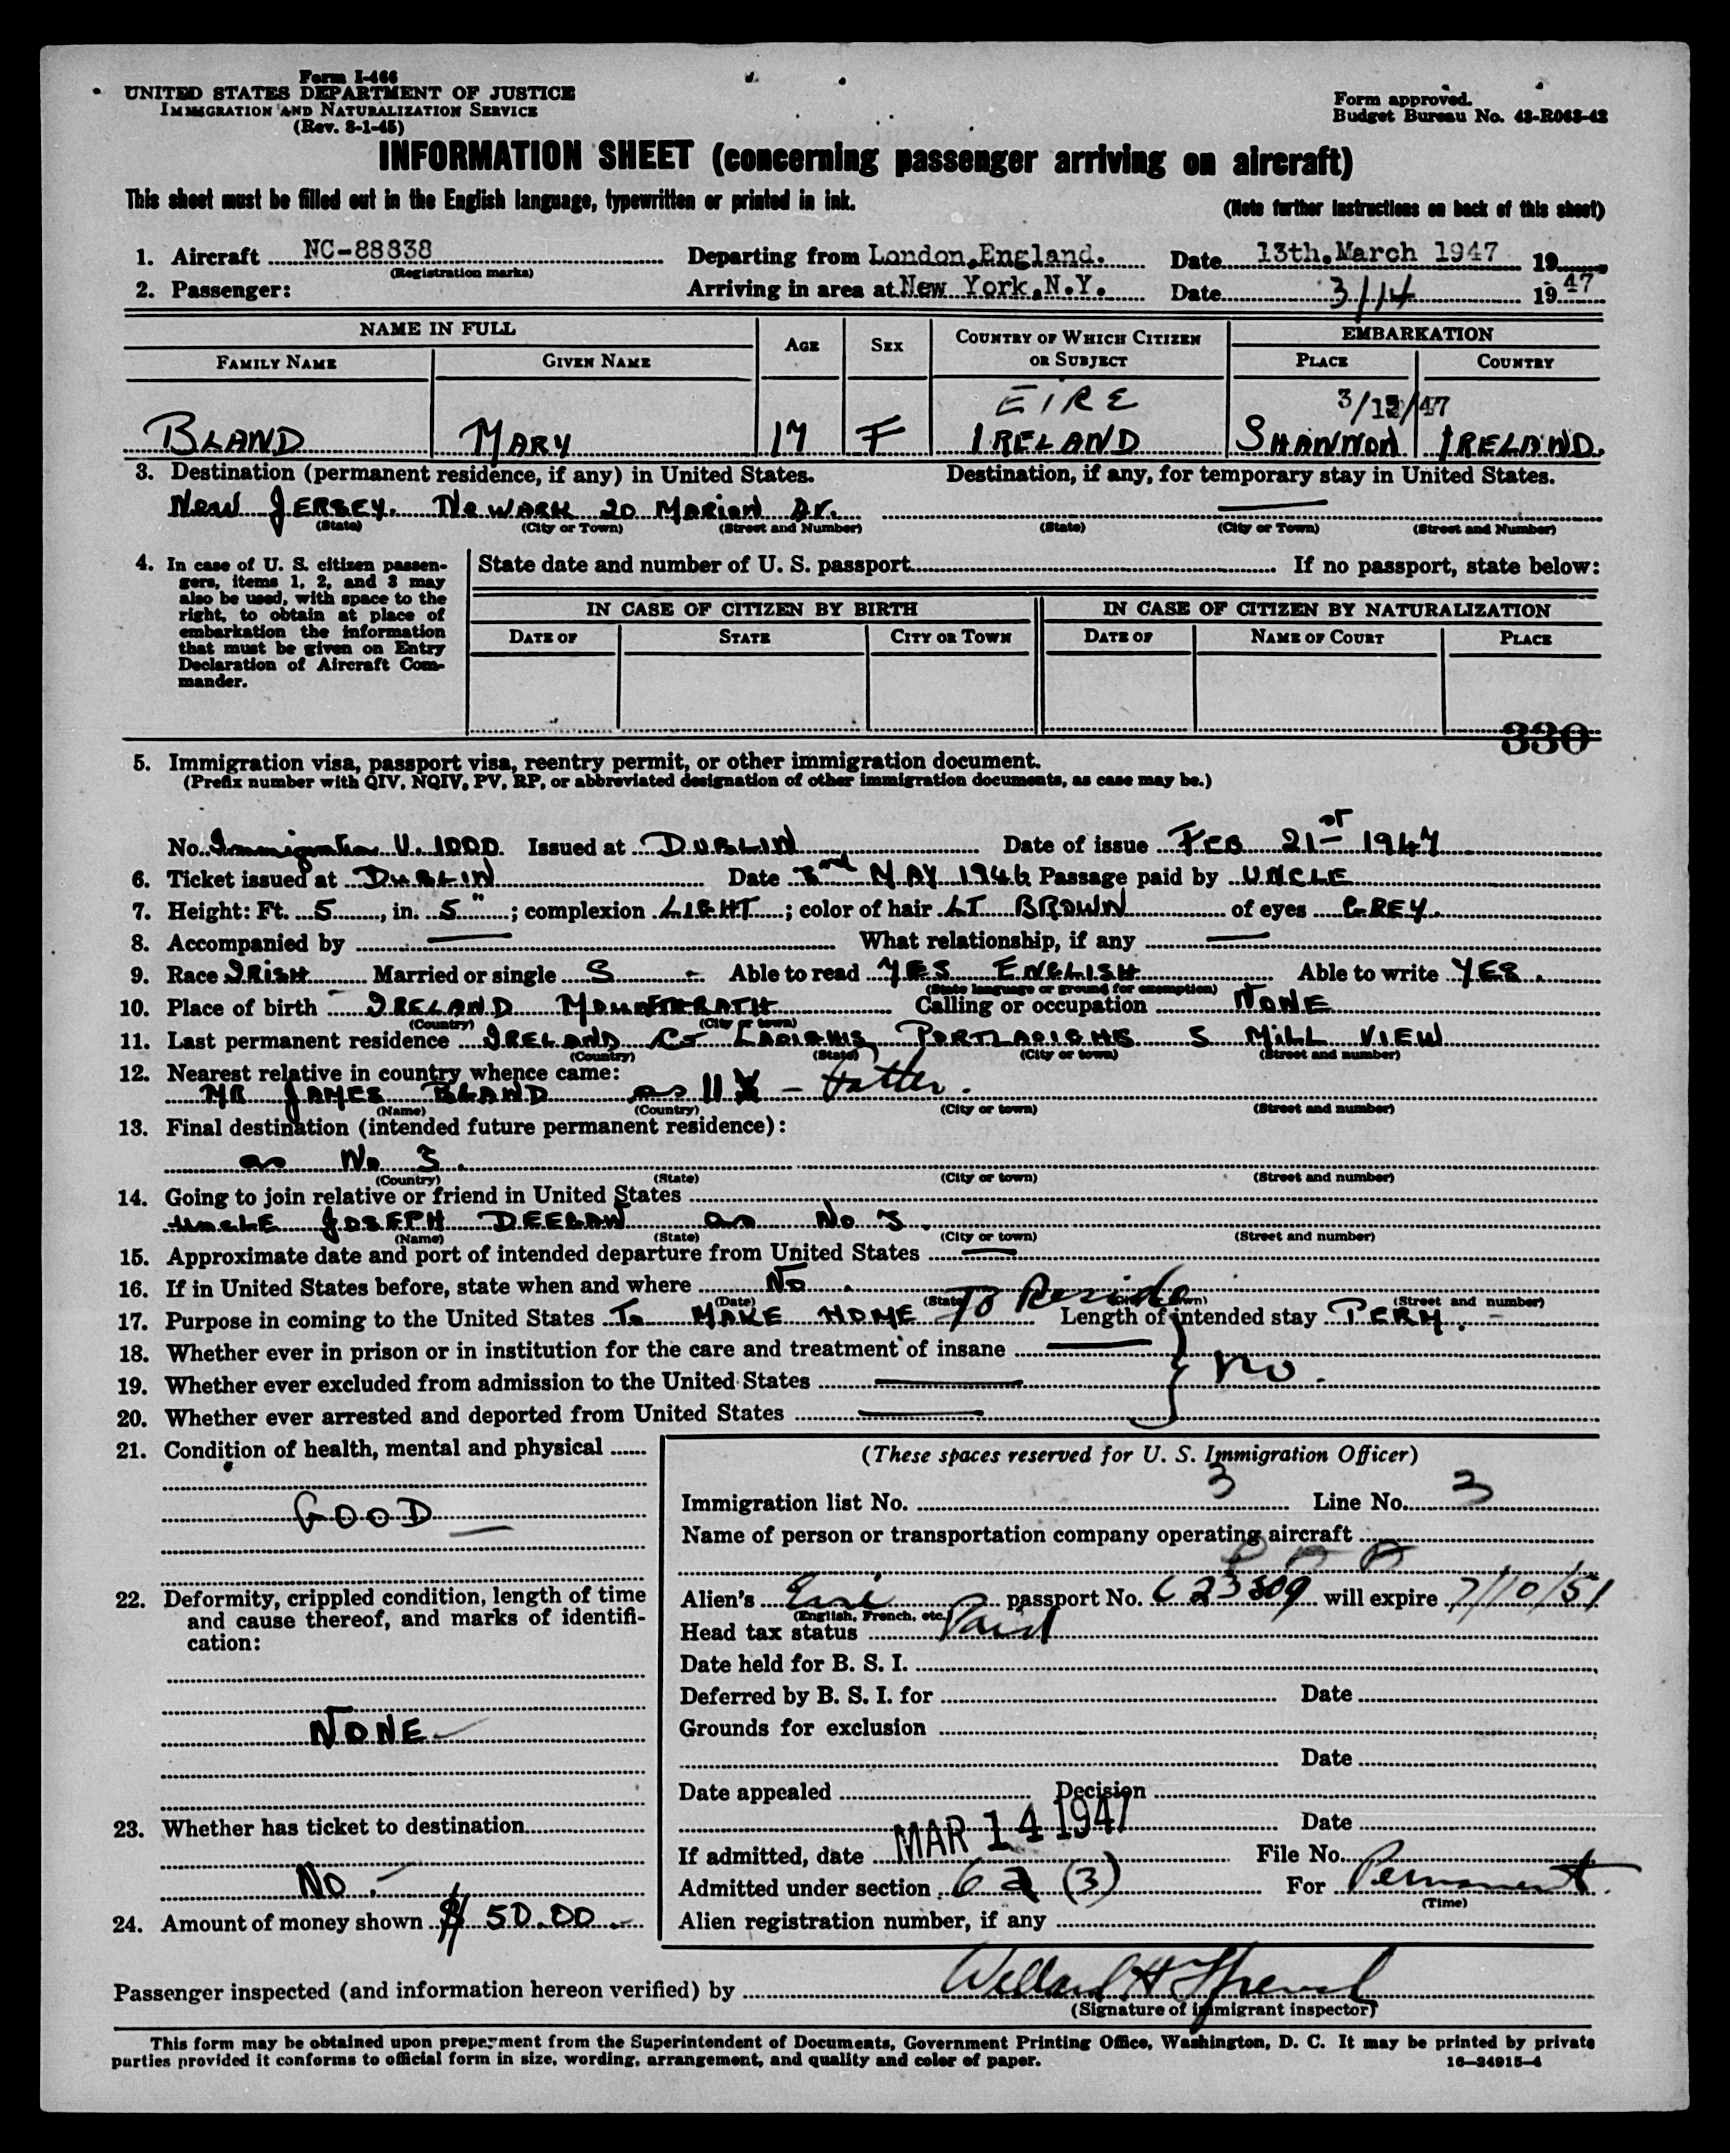 Form I-466
UNITED STATES DEPARTMENT OF JUSTICE
IMMIGRATION AND NATURALIZATION SERVICE
(Rev. 8-1-45)
Form approved.
Budget Bureau No. 43-R063-42
INFORMATION SHEET (concerning passenger arriving on aircraft)
This sheet must be filled out in the English language, typewritten or printed in ink.
(Note further instructions on back of this sheet)
1. Aircraft NC-88838 Departing from London,England. Date 13th.March 1947 19
(Registration marks)
2. Passenger: Arriving in area at New York,N.Y. Date 3/14 1947
NAME IN FULL AGE SEX COUNTRY OF WHICH CITIZEN OR SUBJECT EMBARKATION
FAMILY NAME GIVEN NAME PLACE COUNTRY
EIRE 3/13/47
BLAND MARY 17 F IRELAND SHANNON IRELAND.
3. Destination (permanent residence, if any) in United States. Destination, if any, for temporary stay in United States.
New JERSEY. Newark 20 Marion Dr. —
(State) (City or Town) (Street and Number) (State) (City or Town) (Street and Number)
4. In case of U. S. citizen passengers, items 1, 2, and 3 may also be used, with space to the right, to obtain at place of embarkation the information that must be given on Entry Declaration of Aircraft Commander.
State date and number of U. S. passport If no passport, state below:
IN CASE OF CITIZEN BY BIRTH IN CASE OF CITIZEN BY NATURALIZATION
DATE OF STATE CITY OR TOWN DATE OF NAME OF COURT PLACE
330
5. Immigration visa, passport visa, reentry permit, or other immigration document.
(Prefix number with QIV, NQIV, PV, RP, or abbreviated designation of other immigration documents, as case may be.)
No. Immigration V. 1000 Issued at DUBLIN Date of issue FEB 21st 1947
6. Ticket issued at DUBLIN Date MAY 1946 Passage paid by UNCLE
7. Height: Ft. 5, in. 5"; complexion LIGHT; color of hair LT BROWN of eyes GREY.
8. Accompanied by — What relationship, if any —
9. Race IRISH Married or single S Able to read YES ENGLISH Able to write YES.
(State language or ground for exemption)
10. Place of birth IRELAND MOUNTRATH Calling or occupation NONE
(Country) (City or town)
11. Last permanent residence IRELAND Co PORTLAOIGHE 5 MILL VIEW
(Country) (State) (City or town) (Street and number)
12. Nearest relative in country whence came:
MR JAMES BLAND as 11 – Father.
(Name) (Country) (City or town) (Street and number)
13. Final destination (intended future permanent residence):
as No 3.
(Country) (State) (City or town) (Street and number)
14. Going to join relative or friend in United States
UNCLE JOSEPH DEEGAN as No 3.
(Name) (State) (City or town) (Street and number)
15. Approximate date and port of intended departure from United States —
16. If in United States before, state when and where No.
(Date) (State) (City or town) (Street and number)
17. Purpose in coming to the United States To MAKE HOME To Reside Length of intended stay PERM.
18. Whether ever in prison or in institution for the care and treatment of insane —
19. Whether ever excluded from admission to the United States — } No.
20. Whether ever arrested and deported from United States —
21. Condition of health, mental and physical
GOOD
22. Deformity, crippled condition, length of time and cause thereof, and marks of identification:
NONE
23. Whether has ticket to destination
NO.
24. Amount of money shown $ 50.00
(These spaces reserved for U. S. Immigration Officer)
Immigration list No. 3 Line No. 3
Name of person or transportation company operating aircraft
P A A
Alien's Eire passport No. C 23309 will expire 7/10/51
(English, French, etc.)
Head tax status Paid
Date held for B. S. I.
Deferred by B. S. I. for Date
Grounds for exclusion
Date
Date appealed Decision
Date
If admitted, date MAR 14 1947 File No.
Admitted under section 6 a (3) For Permanent.
(Time)
Alien registration number, if any
Passenger inspected (and information hereon verified) by Willard H
(Signature of immigrant inspector)
This form may be obtained upon prepayment from the Superintendent of Documents, Government Printing Office, Washington, D. C. It may be printed by private
parties provided it conforms to official form in size, wording, arrangement, and quality and color of paper.
16—24915-4